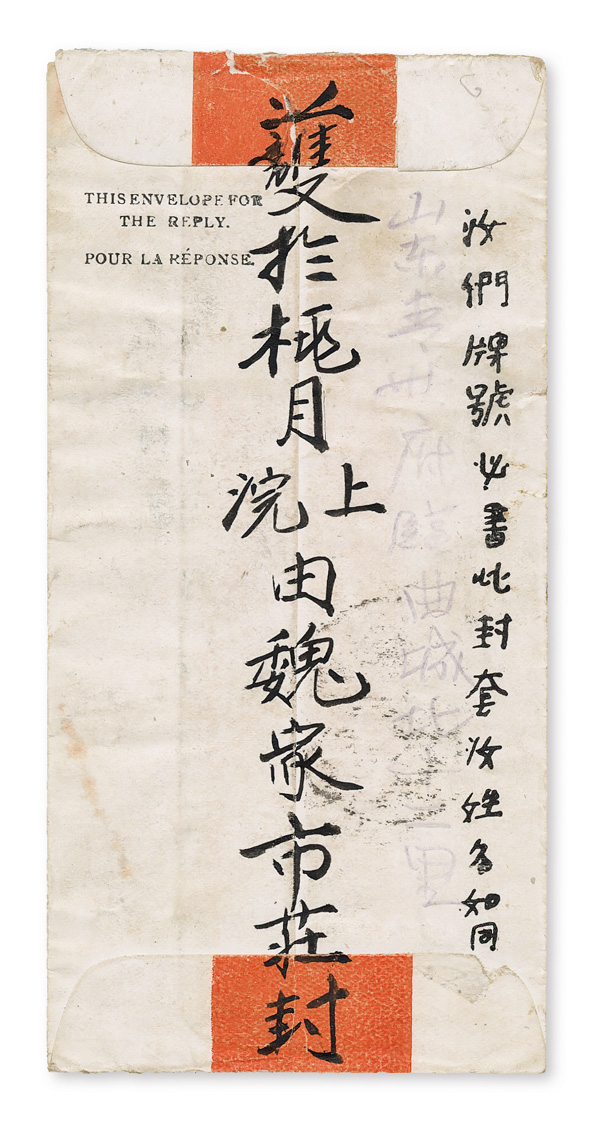 THIS ENVELOPE FOR
THE REPLY.
POUR LA RÉPONSE.
汝們牌號必書此封套汝姓名如同
山东青州府臨曲城北里
護於桃月上浣由魏家市莊封